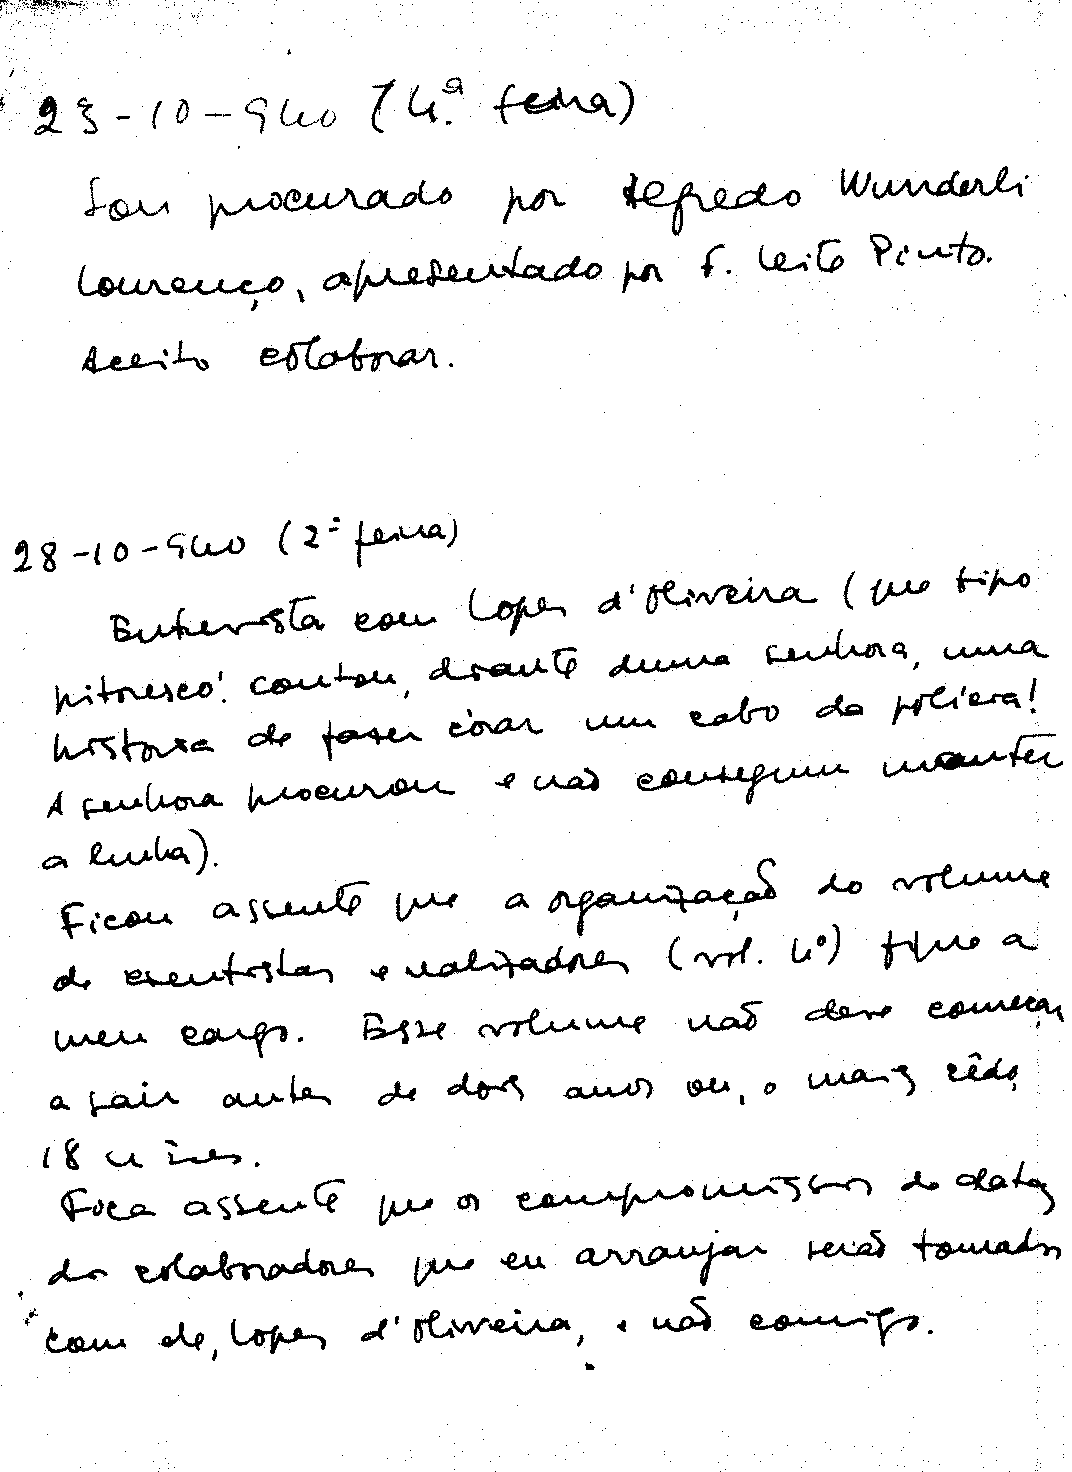 23-10-940 (4.ª feira)
Sou procurado por Alfredo Wunderli
Lourenço, apresentado por F. Leite Pinto.
Aceito colaborar.
28-10-940 (2ª feira)
Entrevista com Lopes d'Oliveira (que tipo
pitoresco! contou, diante duma senhora, uma
historia de fazer córar um cabo da policia!
A senhora procurou e não conseguiu manter
a linha).
Ficou assente que a organização do volume
de cientistas e realizadores (vol. 4º) fique a
meu cargo. Esse volume não deve começar
a sair antes de dois anos ou, o mais cêdo,
18 mêses.
Fica assente que os compromissos de datas
dos colaboradores que eu arranjar serão tomados
com ele, Lopes d'Oliveira, e não comigo.